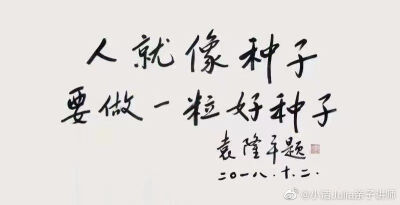 人就像种子
要做一粒好种子
袁隆平题
二〇一八.十.二.
@小语Julia亲子讲师